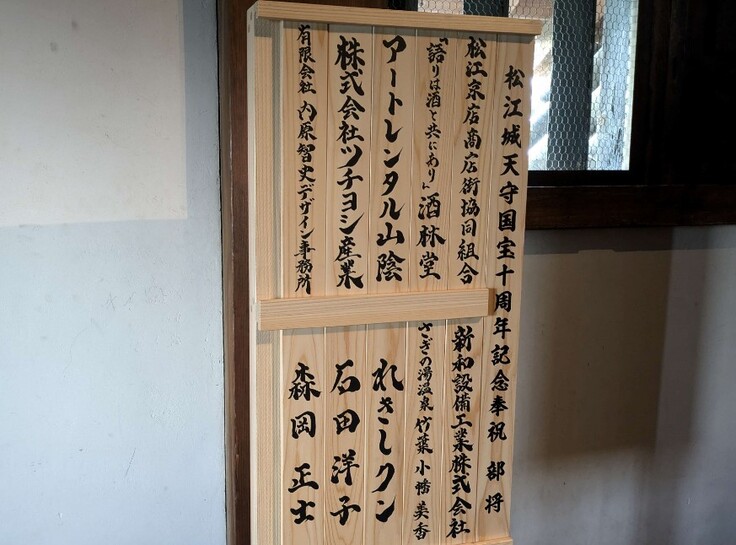 松江城天守国宝十周年記念奉祝 部将
松江京店商店街協同組合
「語りは酒と共にあり」酒林堂
アートレンタル山陰
株式会社ツチヨシ産業
有限会社 内原智史デザイン事務所
新和設備工業株式会社
さぎの湯温泉 竹葉 小幡美香
れさしクン
石田洋子
森岡正士